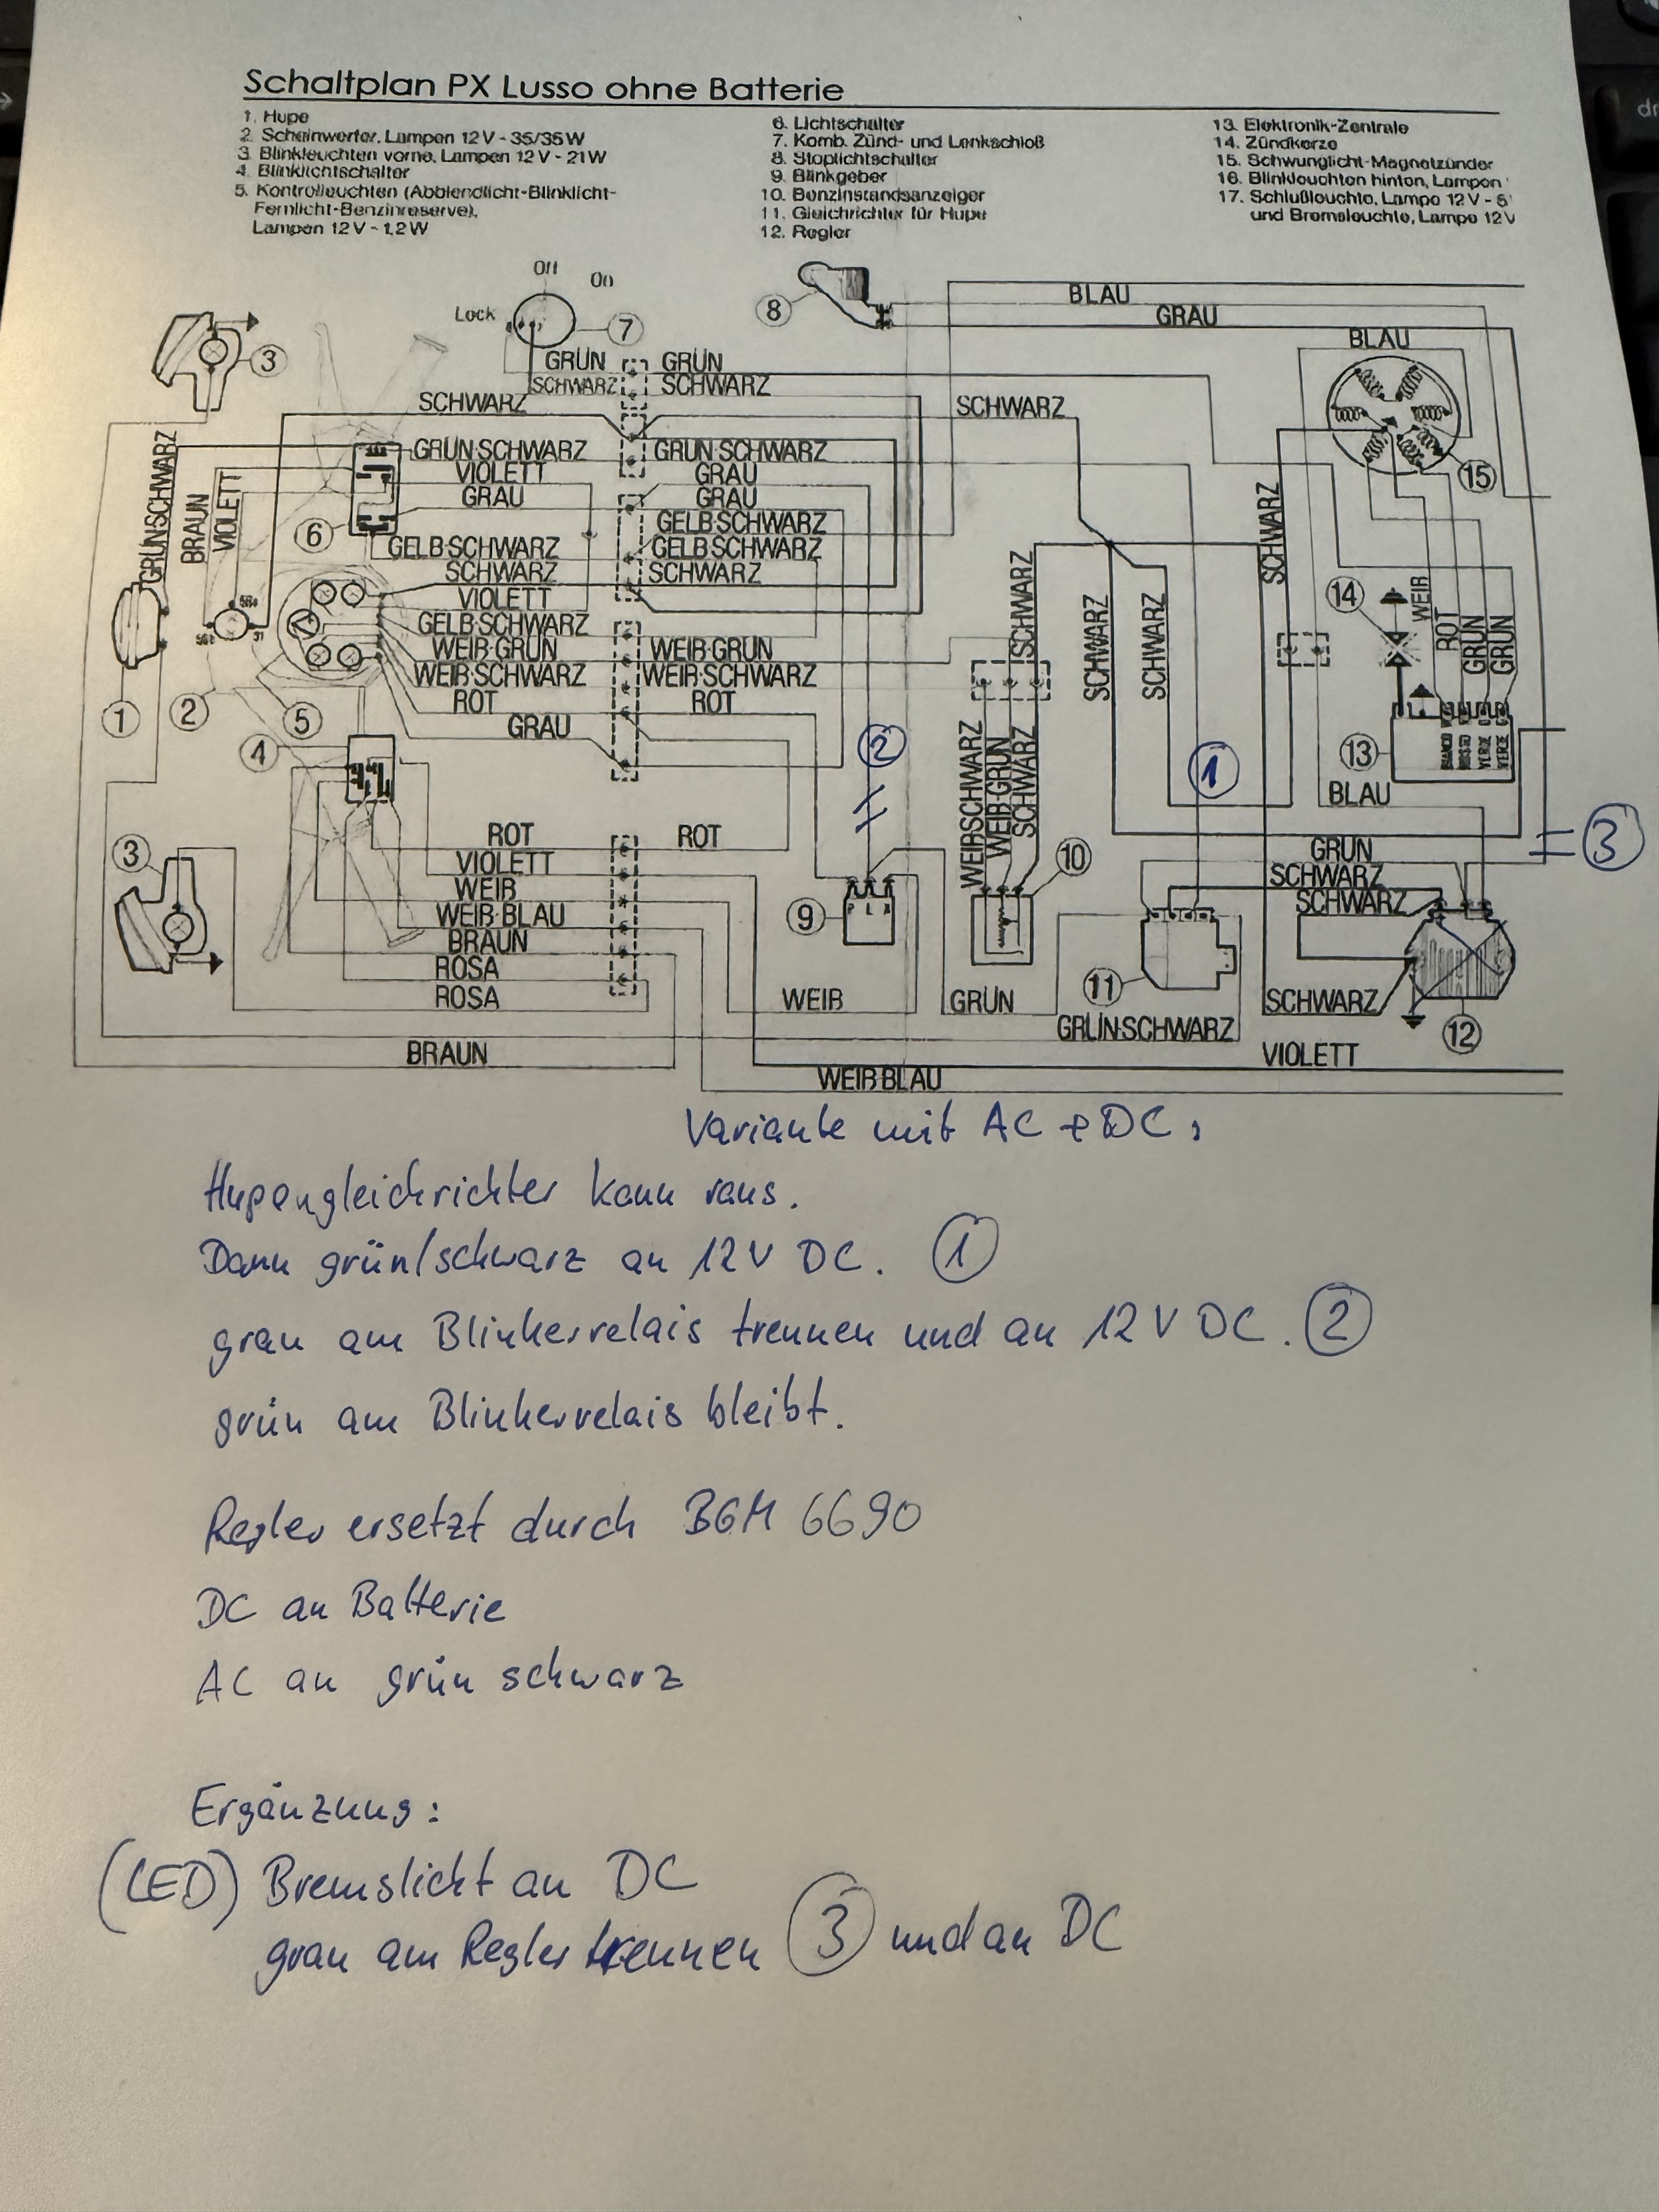 Schaltplan PX Lusso ohne Batterie
1. Hupe
2. Scheinwerfer, Lampen 12 V - 35/35 W
3. Blinkleuchten vorne, Lampen 12 V - 21 W
4. Blinklichtschalter
5. Kontrolleuchten (Abblendlicht-Blinklicht-
Fernlicht-Benzinreserve),
Lampen 12 V - 1,2 W
6. Lichtschalter
7. Komb. Zünd- und Lenkschloß
8. Stoplichtschalter
9. Blinkgeber
10. Benzinstandsanzeiger
11. Gleichrichter für Hupe
12. Regler
13. Elektronik-Zentrale
14. Zündkerze
15. Schwunglicht-Magnetzünder
16. Blinkleuchten hinten, Lampen
17. Schlußleuchte, Lampe 12 V - 5
und Bremsleuchte, Lampe 12 V
Off
On
Lock
7
8
BLAU
GRAU
BLAU
3
GRÜN GRÜN
SCHWARZ SCHWARZ
SCHWARZ SCHWARZ
15
GRÜN·SCHWARZ GRÜN·SCHWARZ
VIOLETT GRAU
GRAU GRAU
GELB·SCHWARZ
GELB·SCHWARZ GELB·SCHWARZ
SCHWARZ SCHWARZ
VIOLETT
GELB·SCHWARZ
WEIß·GRÜN WEIß·GRÜN
WEIß·SCHWARZ WEIß·SCHWARZ
ROT ROT
GRAU
GRÜN·SCHWARZ
BRAUN
VIOLETT
6
1
2
5
4
3
SCHWARZ
SCHWARZ
SCHWARZ
SCHWARZ
14
WEIß
ROT
GRÜN
GRÜN
BIANCO
ROSSO
VERDE
VERDE
13
2
1
3
WEIß·SCHWARZ
WEIß·GRÜN
SCHWARZ
BLAU
10
ROT ROT
VIOLETT
WEIß
WEIß·BLAU
BRAUN
ROSA
ROSA
9
P L
WEIß
GRÜN
11
GRÜN·SCHWARZ
GRÜN
SCHWARZ
SCHWARZ
SCHWARZ
12
BRAUN
VIOLETT
WEIß·BLAU
Variante mit AC + DC:
Hupengleichrichter kann raus.
Dann grün/schwarz an 12 V DC. 1
grau am Blinkerrelais trennen und an 12 V DC. 2
grün am Blinkerrelais bleibt.
Regler ersetzt durch BGM 6690
DC an Batterie
AC an grün schwarz
Ergänzung:
(LED) Bremslicht an DC
grau am Regler trennen 3 und an DC